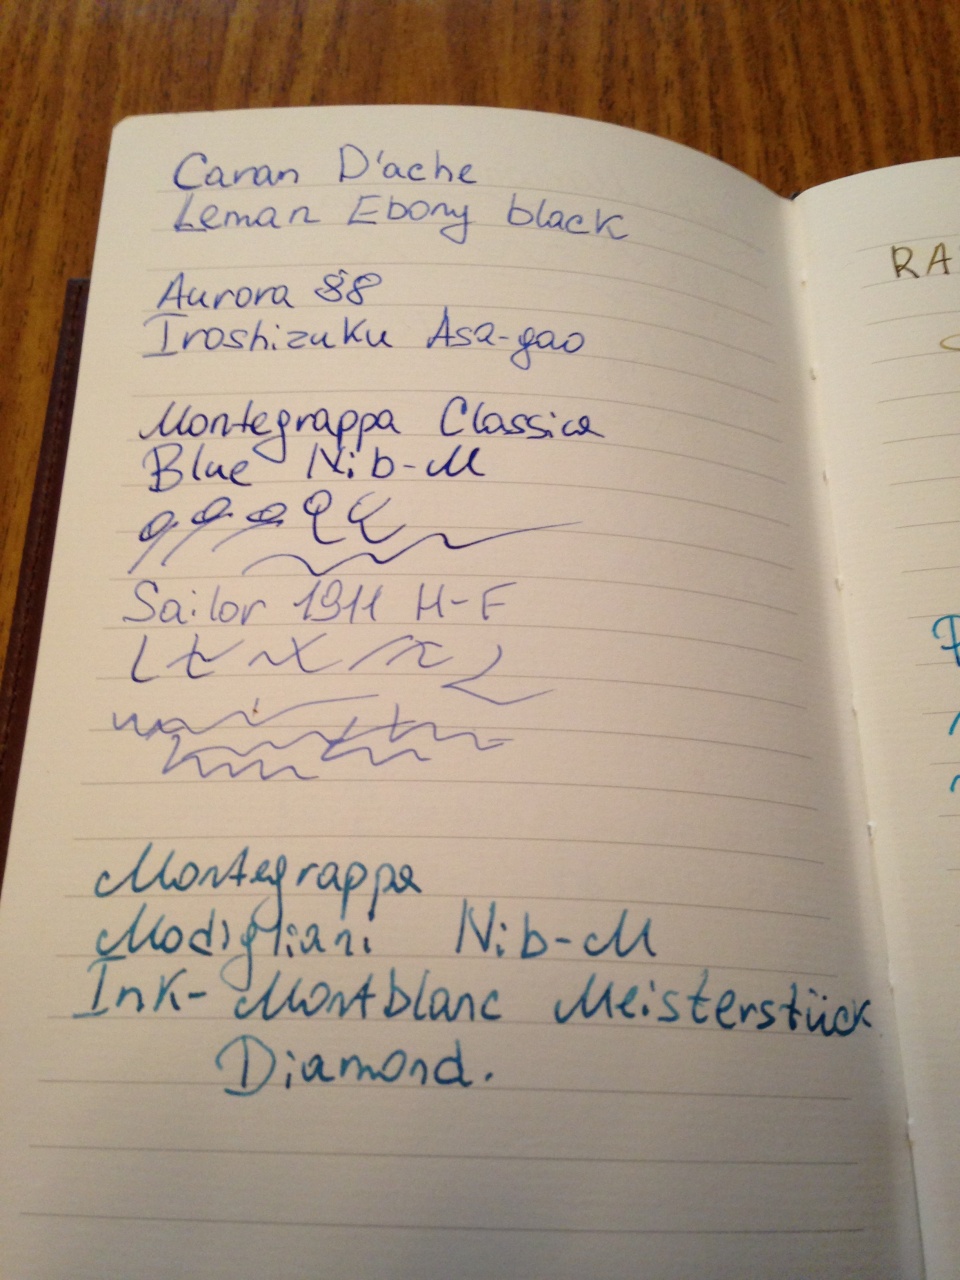 Caran D'ache
Leman Ebony black
Aurora 88
Iroshizuku Asa-gao
Montegrappa Classica
Blue Nib-M
Sailor 1911 H-F
Montegrappa
Modigliani Nib-M
Ink- Montblanc Meisterstück
Diamond.
RA